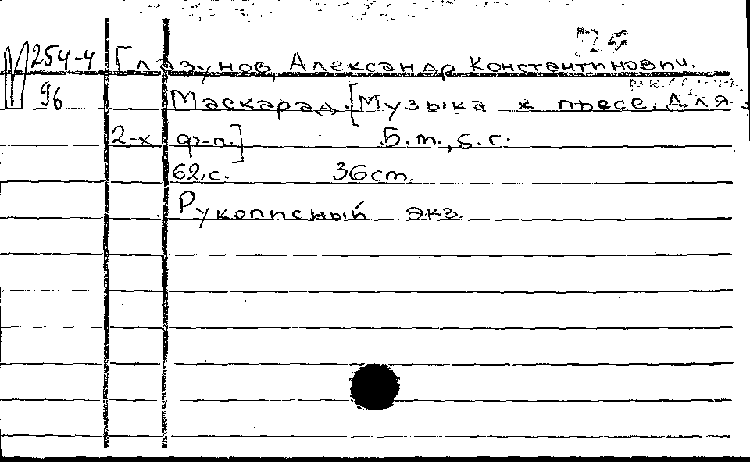 254-4 Глазунов, Александр Константинович.
96 Маскарад. [Музыка к пьесе. Для
2-х ф-п.] Б.м., б.г.
62.с. 36 ст.
Рукописный экз.